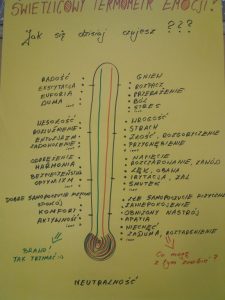 ŚWIETLICOWY TERMOMETR EMOCJI?
Jak się dzisiaj czujesz ???
RADOŚĆ
EKSCYTACJA
EUFORIA
DUMA
WESOŁOŚĆ
ROZLUŹNIENIE
ENTUZJAZM
ZADOWOLENIE
ODPRĘŻENIE
HARMONIA
BEZPIECZEŃSTWO
OPTYMIZM
DOBRE SAMOPOCZUCIE FIZYCZNE
SPOKÓJ
KOMFORT
AKTYWNOŚĆ
BRAWO!
TAK TRZYMAJ
GNIEW
ROZPACZ
PRZERAŻENIE
BÓL
STRES
WROGOŚĆ
STRACH
ZŁOŚĆ, ROZGORYCZENIE
PRZYGNĘBIENIE
NAPIĘCIE
ROZCZAROWANIE, ZAWÓD
LĘK, OBAWA
IRYTACJA, ŻAL
SMUTEK
ZŁE SAMOPOCZUCIE FIZYCZNE
ZANIEPOKOJENIE
OBNIŻONY NASTRÓJ
APATIA
NIECHĘĆ
ZADUMA, ROZTARGNIENIE
Co mogę
z tym zrobić?
NEUTRALNOŚĆ